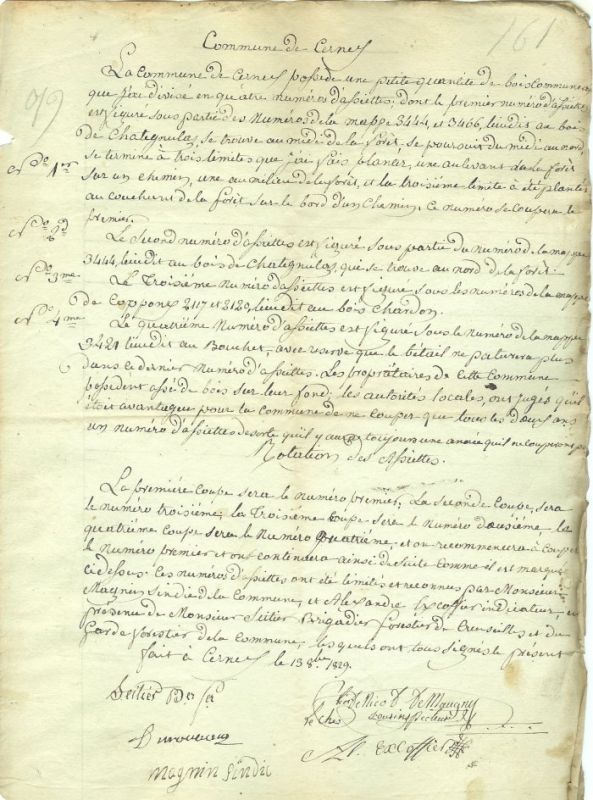 161
Commune de Cernex
La Commune de Cernex possède une petite quantité de bois communeaux
que j'ai divisé en quatre numéros d'assiettes, dont le premier numéro d'assiette
est figuré sous partie des Numéros de la mappe 3444, et 3466, lieudit au bois
de Chatignulas, se trouve au midi de la forêt, se poursuit du midi au nord
No 1er
se termine à trois limites que j'ai fais planter, une au levant de la forêt
sur un chemin, une au milieu de la forêt, et la troisième limite à été plantée
au couchant de la forêt sur le bord d'un chemin, ce numéro se coupera le
premier.
No 2d
Le Second numéro d'assiettes est figuré sous partie du numéro de la mappe
3444, lieudit au bois de Chatignulas, qui se trouve au nord de la forêt.
No 3me
Le Troisième Numéro d'assiettes est figuré sous les numéros de la mappe
de Copponex 2117 et 2120, lieudit au bois Chardon.
No 4me
Le quatrième Numéro d'assiettes est figuré sous le numéro de la mappe
3421 lieudit au Bouchet, avec reserve que le bétail ne paturera plus
dans ce dernier Numéro d'assiettes. Les propriétaires de cette Commune
possedent assé de bois sur leur fond; les autorités locales, ont jugés qu'il
étoit avantageux pour la commune de ne couper que tous les deux ans
un numéro d'assiettes desorte qu'il y aura toujours une année qu'il ne couperont pas
Rotation des Assiettes.
La première coupe sera le numéro premier; La seconde coupe, sera
le numéro troisième, la Troisième coupe sera le Numéro deuxième la
quatrième coupe sera le Numéro quatrième, et on recommencera à couper
le numéro premier et on continuera ainsi de suite comme il est marqué
cidessus. Ces numéros d'assiettes ont été limités et reconnus par Monsieur
Magnin sindic de la Commune, et Alexandre Excoffier indicateur, en
présence de Monsieur Seitier Brigadier forestier de Cruseilles et du
Garde forestier de la Commune, lesquels ont tous signés le présent
fait à Cernex le 13 8bre 1829.
Seitier Ber fer
De Nico D. De Maugny
le Chev
sousinspecteur
Al. Excoffier
magnin sindic